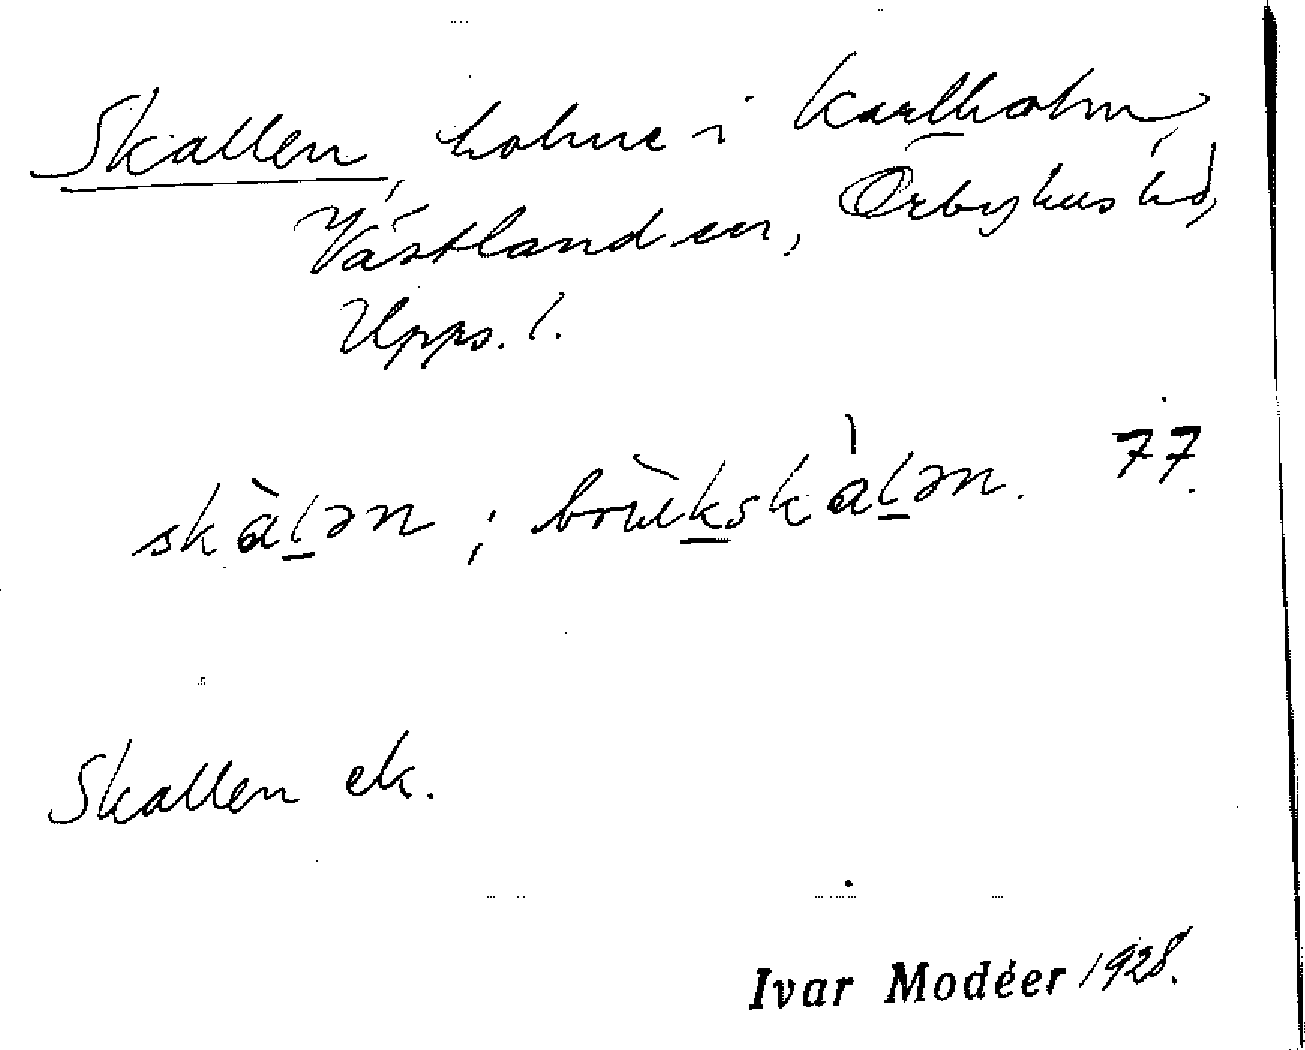 Skallen, holme i Karlholm,
Västlanden, Örbyhus hd,
Upps. l.
skàlən ; brùkskàlən. 77.
Skallen ek.
Ivar Modéer 1928.